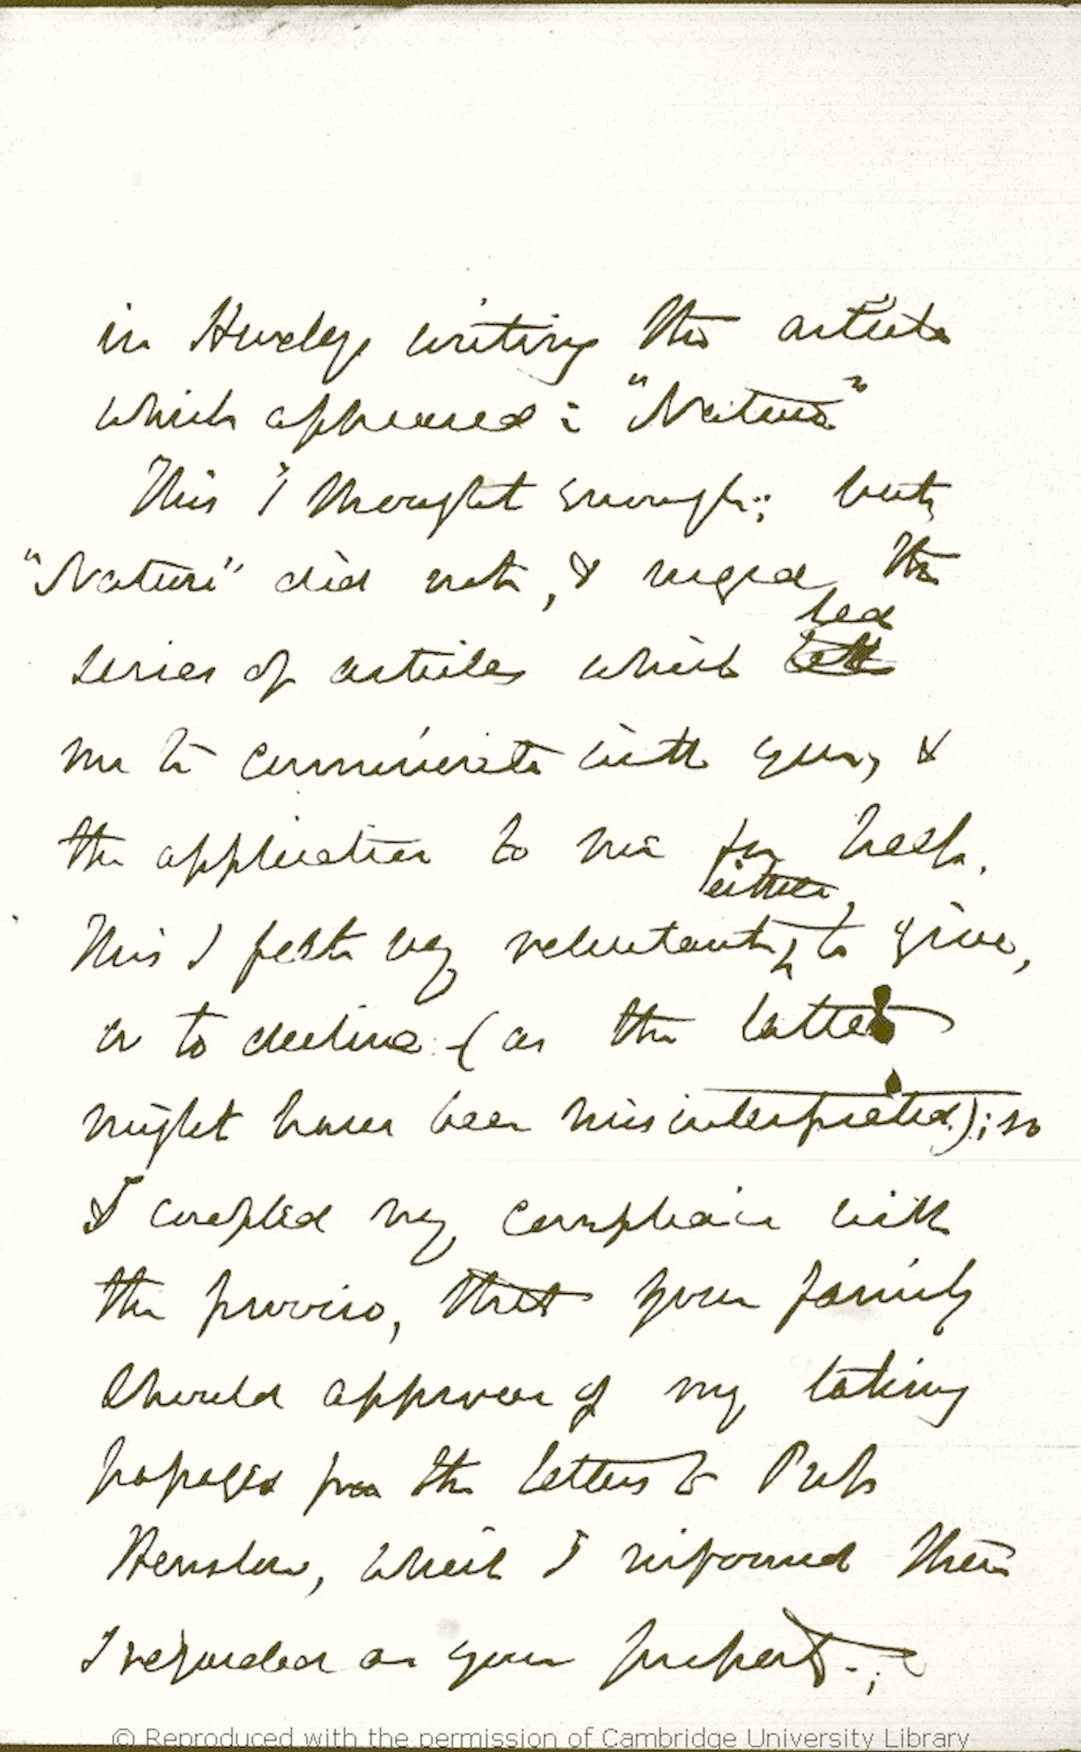 in Huxleys writing the article
which appeared in "Nature"
This I thought enough; but
"Nature" did not, & urged the
series of articles which led
me to communicate with you, &
the application to me for help.
This I felt very reluctant, either, to give,
or to decline (as the latter
might have been misinterpreted); so
I coupled my compliance with
the proviso, that your family
should approve of my taking
passages from the letters to Prof
Henslow, which I informed them
I regarded as your property.;
© Reproduced with the permission of Cambridge University Library